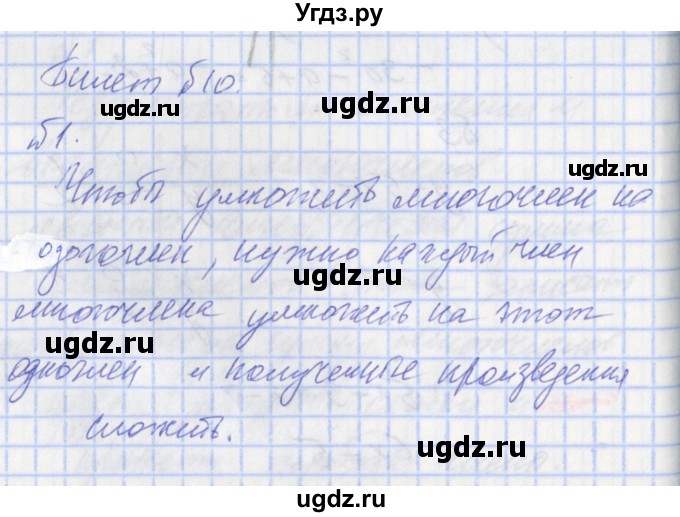 Угдз.ру
Билет №10.
ugdz.ru ugdz.ru
№1.
ugdz.ru
Чтобы умножить многочлен на
ugdz.ru
одночлен, нужно каждый член
ugdz.ru ugdz.ru
многочлена умножить на этот
ugdz.ru
одночлен и полученные произведения
ugdz.ru ugdz.ru
сложить.
ugdz.ru
ugdz.ru